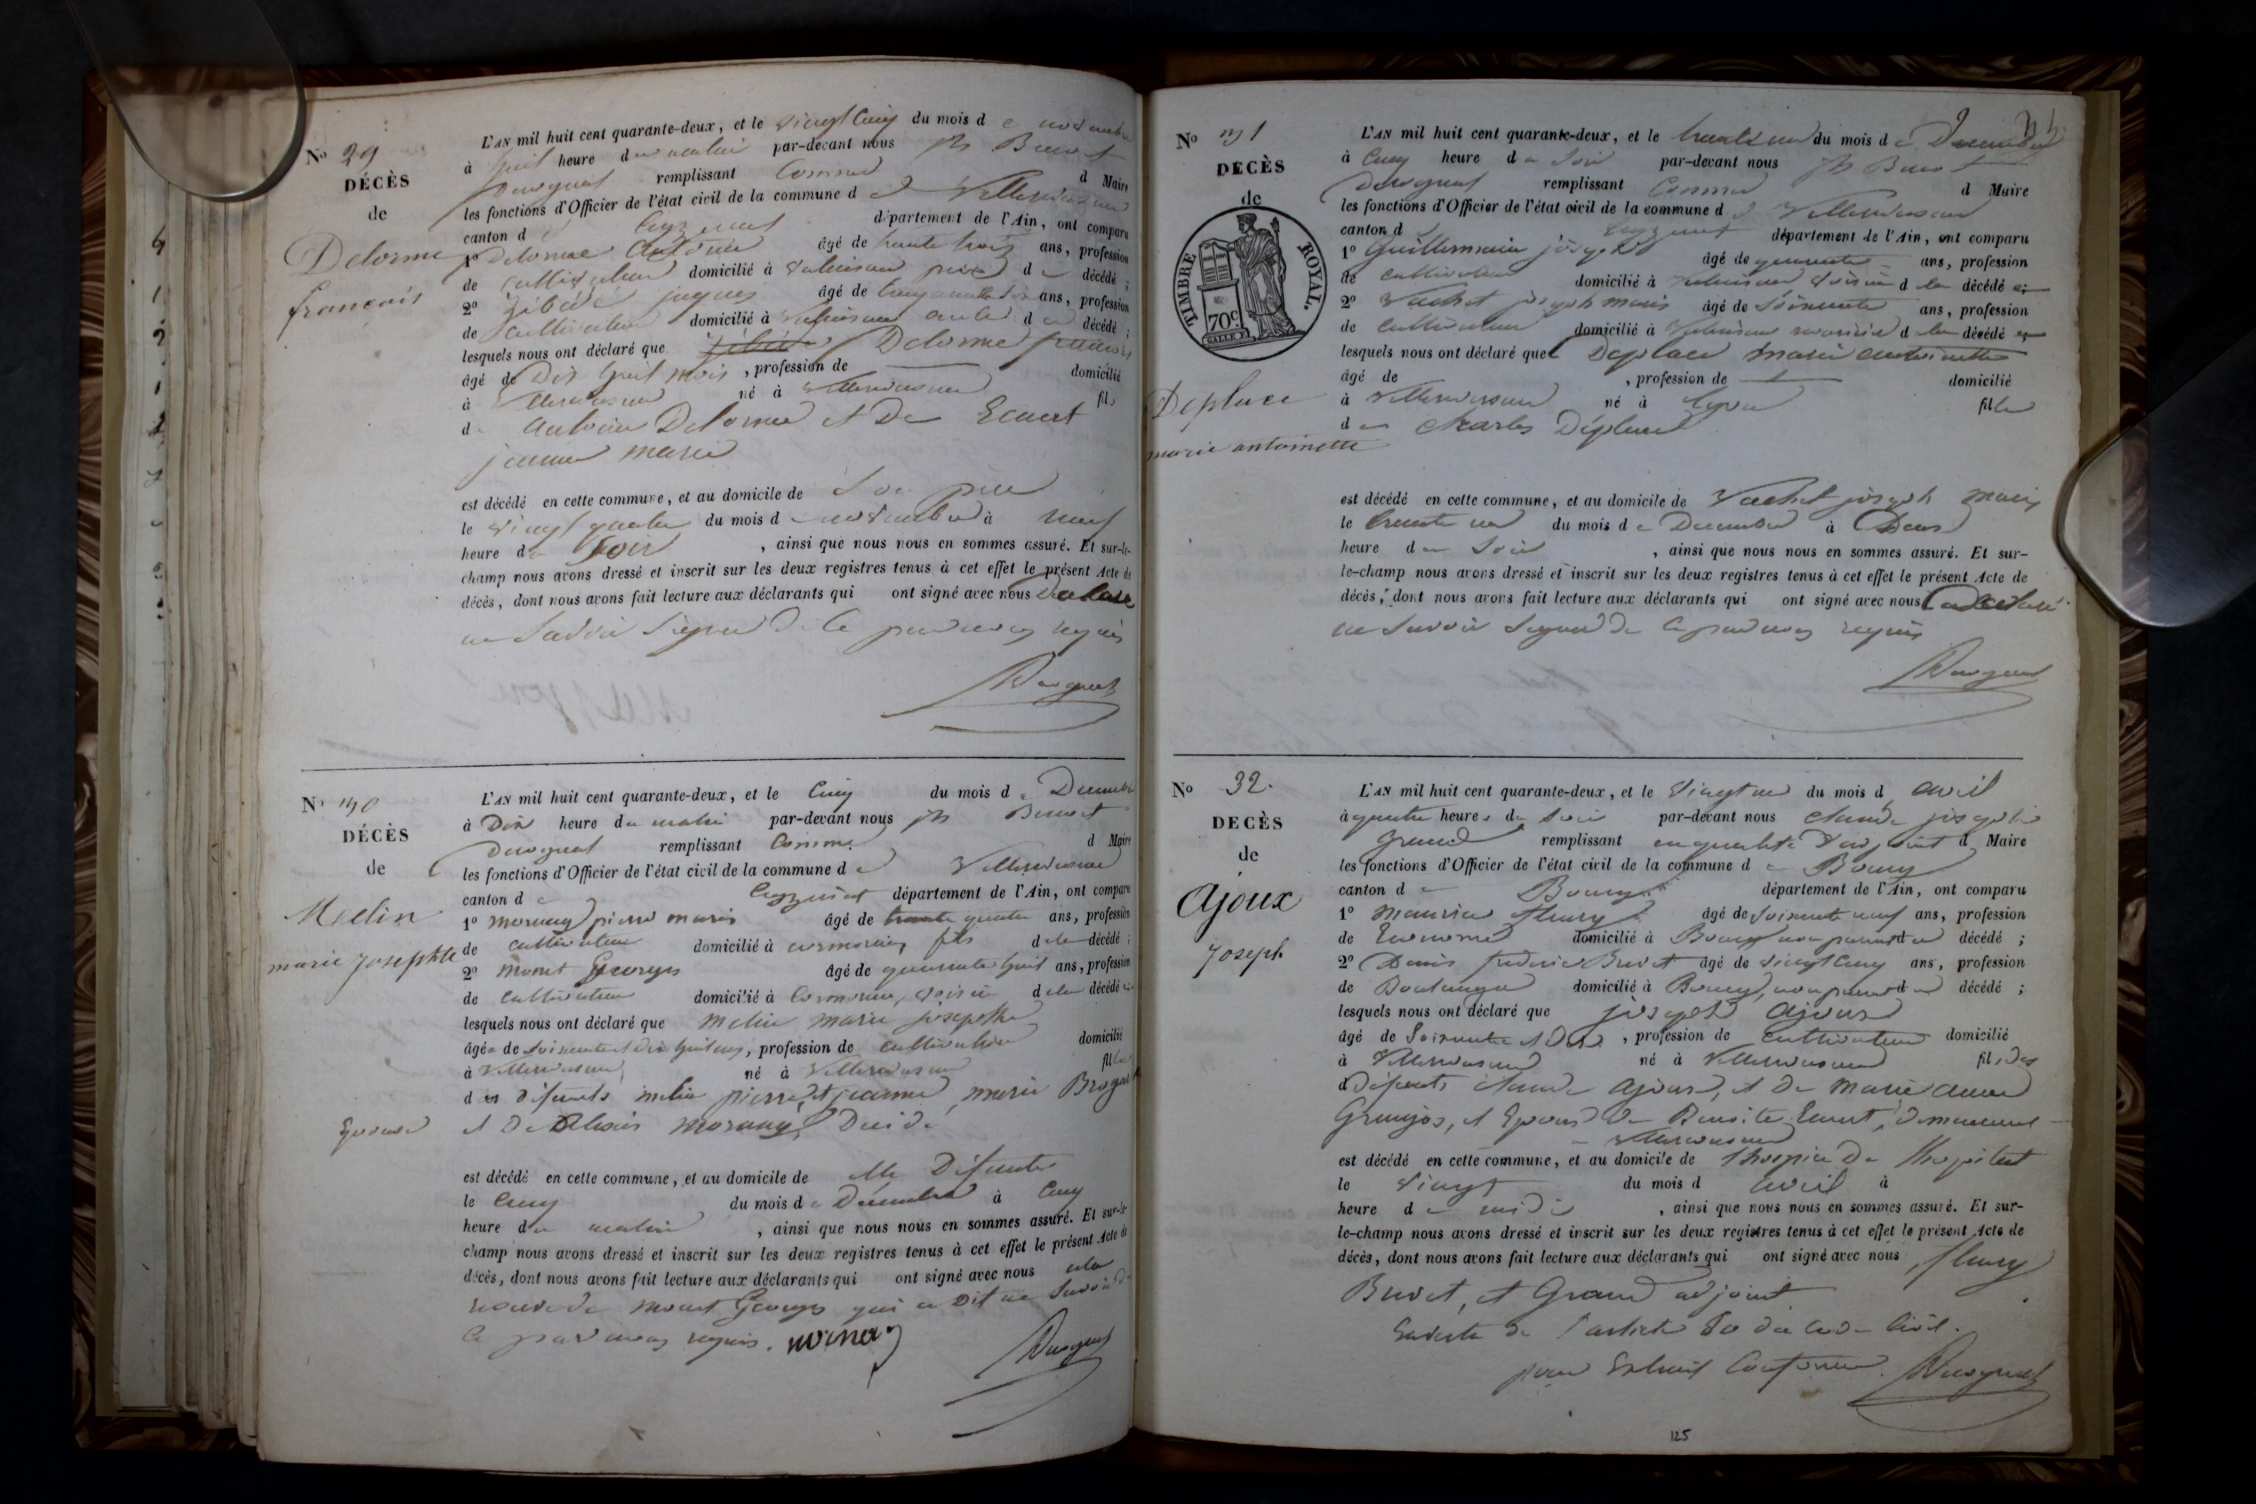 No 29
DÉCÈS
de
Delorme
françois
L'AN mil huit cent quarante-deux, et le vingt Cinq du mois de novembre
à huit heure du matin par-devant nous Benoit
remplissant Comme d Maire
les fonctions d'Officier de l'état civil de la commune de Villereversure
canton de Ceyzeriat département de l'Ain, ont comparu
1º Delorme Antoine âgé de trente trois ans, profession
de Cultivateur domicilié à père du décédé ;
2º jacques âgé de ans, profession
de Cultivateur domicilié à du décédé ;
lesquels nous ont déclaré que Delorme françois
âgé de Dix huit mois, profession de — domicilié
à Villereversure né à Villereversure fils
de Antoine Delorme et De Ecuert
jeanne marie
est décédé en cette commune, et au domicile de Son père
le vingt quatre du mois de novembre à neuf
heure du Soir, ainsi que nous nous en sommes assuré. Et sur-le-
champ nous avons dressé et inscrit sur les deux registres tenus à cet effet le présent Acte de
décès, dont nous avons fait lecture aux déclarants qui ont signé avec nous Declaré
ne Savoir Signer De ce par nous requis
No 30
DÉCÈS
de
Melin
marie josephte
L'AN mil huit cent quarante-deux, et le Cinq du mois de Decembre
à Dix heure du matin par-devant nous Benoit
remplissant Comme d Maire
les fonctions d'Officier de l'état civil de la commune de Villereversure
canton de Ceyzeriat département de l'Ain, ont comparu
1º morand pierre marie âgé de quatre ans, profession
de cultivateur domicilié à fils de la décédé ;
2º monet Georges âgé de quarante huit ans, profession
de cultivateur domicilié à voisin de la décédé
lesquels nous ont déclaré que melin marie josephte
âgée de soixante et dix huit ans, profession de cultivatrice domicilié
à Villereversure né à Villereversure fille
des défunts melin pierre et jeanne marie
Epouse et De morand
est décédé en cette commune, et au domicile de la Défunte
le Cinq du mois de Décembre à Cinq
heure du matin, ainsi que nous nous en sommes assuré. Et sur-le-
champ nous avons dressé et inscrit sur les deux registres tenus à cet effet le présent Acte de
décès, dont nous avons fait lecture aux déclarants qui ont signé avec nous
monet Georges qui a Dit ne Savoir
ce par nous requis.
No 31
DÉCÈS
de
TIMBRE ROYAL.
70c
Deplace
marie antoinette
L'AN mil huit cent quarante-deux, et le trente un du mois de Decembre
à Cinq heure du Soir par-devant nous Benoit
remplissant Comme d Maire
les fonctions d'Officier de l'état civil de la commune de Villereversure
canton d Ceyzeriat département de l'Ain, ont comparu
1º Guillermin joseph âgé de quarante ans, profession
de cultivateur domicilié à voisin de la décédé
2º Vachet joseph marie âgé de soixante ans, profession
de Cultivateur domicilié à de la décédé
lesquels nous ont déclaré que Deplace marie antoinette
âgé de, profession de — domicilié
à Villereversure né à Lyon fille
de Charles Déplace
est décédé en cette commune, et au domicile de Vachet joseph marie
le trente un du mois de Decembre à Deux
heure du Soir, ainsi que nous nous en sommes assuré. Et sur-
le-champ nous avons dressé et inscrit sur les deux registres tenus à cet effet le présent Acte de
décès, dont nous avons fait lecture aux déclarants qui ont signé avec nous
ne Savoir Signer De ce par nous requis
No 32.
DÉCÈS
de
Ajoux
Joseph
L'AN mil huit cent quarante-deux, et le vingt un du mois d avril
à quatre heures du Soir par-devant nous Claude joseph
Grand remplissant en qualité d'adjoint d Maire
les fonctions d'Officier de l'état civil de la commune de Bourg
canton de Bourg département de l'Ain, ont comparu
1º Maurice fleury âgé de soixante neuf ans, profession
de Econome domicilié à Bourg non parent du décédé ;
2º Denis frederic Buvet âgé de vingt Cinq ans, profession
de Boulanger domicilié à Bourg, non parent du décédé ;
lesquels nous ont déclaré que joseph Ajoux
âgé de Soixante et Dix, profession de Cultivateur domicilié
à Villereversure né à Villereversure fils des
défunts Claude Ajoux, et De Marie anne
et Epoux De Benoite Ecuert, demeurant
Villereversure
est décédé en cette commune, et au domicile de l'hospice De l'hopital
le vingt du mois d avril à
heure de midi, ainsi que nous nous en sommes assuré. Et sur-
le-champ nous avons dressé et inscrit sur les deux registres tenus à cet effet le présent Acte de
décès, dont nous avons fait lecture aux déclarants qui ont signé avec nous, fleury
Buvet, et Grand adjoint
En vertu de l'article 80 du code Civil.
pour Extrait Conforme.
125